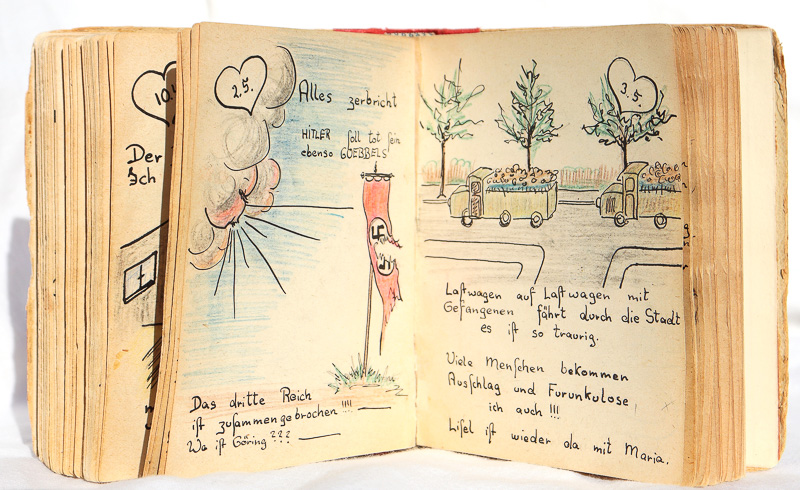 10.
Der
Ich
2.5.
Alles zerbricht
HITLER soll tot sein
ebenso GOEBBELS
Das dritte Reich
ist zusammengebrochen !!!!
Wo ist Göring ???
3.5.
Lastwagen auf Lastwagen mit
Gefangenen fährt durch die Stadt
es ist so traurig.
Viele Menschen bekommen
Ausschlag und Furunkulose
ich auch !!!
Lisel ist wieder da mit Maria.